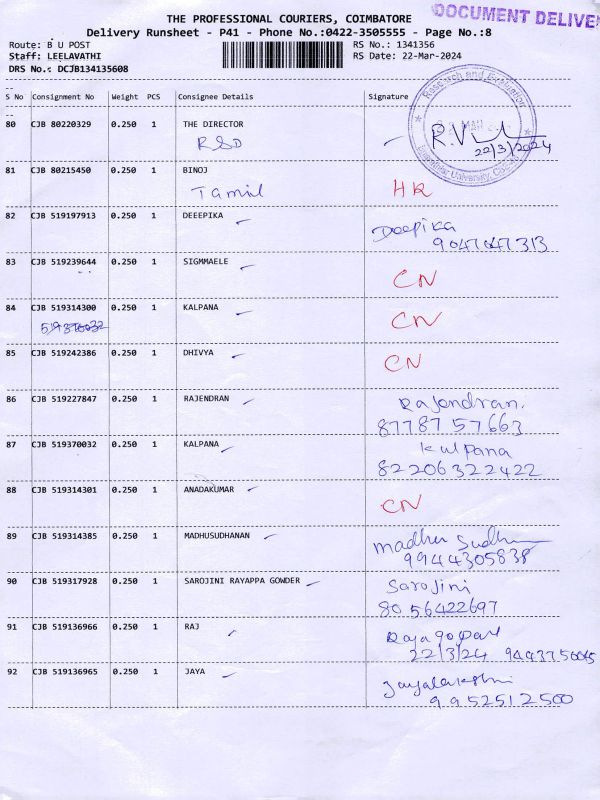 THE PROFESSIONAL COURIERS, COIMBATORE
DOCUMENT DELIVE
Delivery Runsheet - P41 - Phone No.:0422-3505555 - Page No.:8
Route: B U POST RS No.: 1341356
Staff: LEELAVATHI RS Date: 22-Mar-2024
DRS No.: DCJB134135608
S No Consignment No Weight PCS Consignee Details Signature
Research and Evaluation
80 CJB 80220329 0.250 1 THE DIRECTOR
RSD 22/3/2024
81 CJB 80215450 0.250 1 BINOJ
Tamil HR
82 CJB 519197913 0.250 1 DEEEPIKA
Deepika
9047047313
83 CJB 519239644 0.250 1 SIGMMAELE
CN
84 CJB 519314300 0.250 1 KALPANA
CN
85 CJB 519242386 0.250 1 DHIVYA
CN
86 CJB 519227847 0.250 1 RAJENDRAN
Rajendran.
8778757663
87 CJB 519370032 0.250 1 KALPANA
Kalpana
82206322422
88 CJB 519314301 0.250 1 ANADAKUMAR
CN
89 CJB 519314385 0.250 1 MADHUSUDHANAN
9944305838
90 CJB 519317928 0.250 1 SAROJINI RAYAPPA GOWDER
Sarojini
8056422697
91 CJB 519136966 0.250 1 RAJ
Rajagopal
22/3/24
92 CJB 519136965 0.250 1 JAYA
9952512500